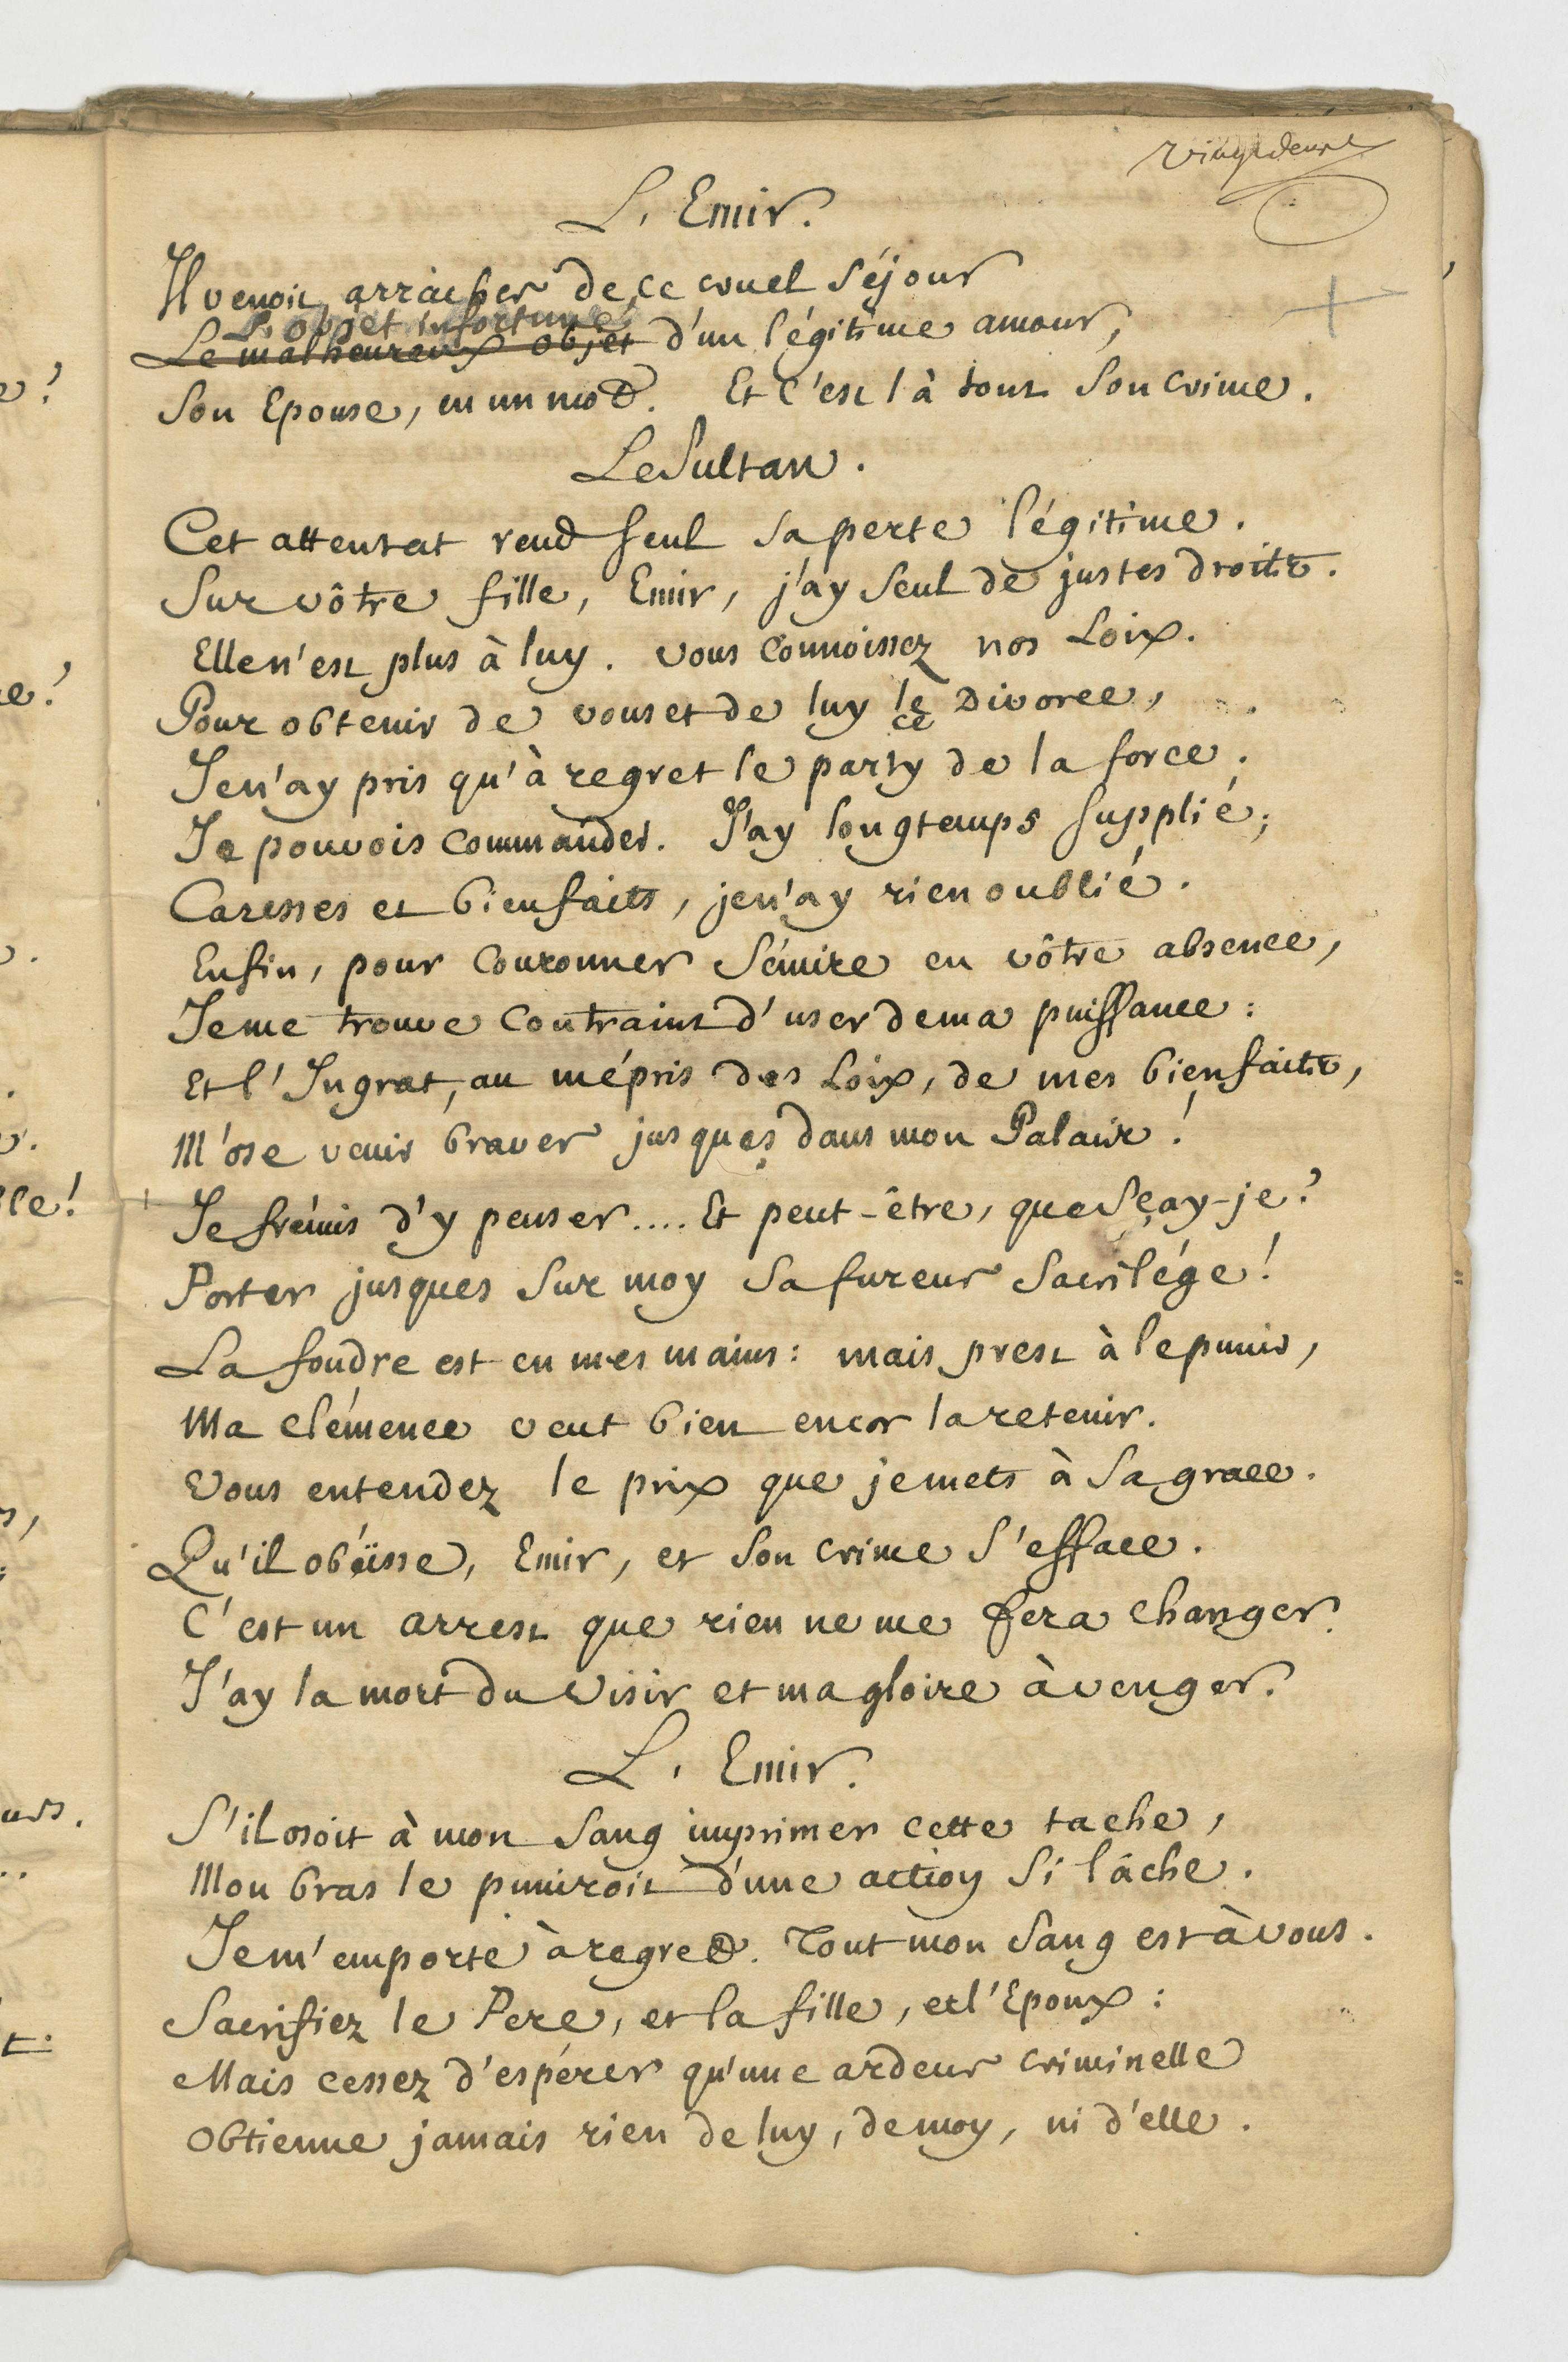 Vingtdeux
L'Emir.
Il venoit arracher de ce cruel séjour
L'objet infortuné
Le malheureux objet d'un légitime amour,
Son Epouse, en un mot. Et c'est là tout son crime.
Le Sultan.
Cet attentat rend seul sa perte légitime.
Sur vôtre fille, Emir, j'ay seul de justes droits.
Elle n'est plus à luy. vous connoissez nos Loix.
Pour obtenir de vous et de luy le Divorce,
ce
Je n'ay pris qu'à regret le party de la force.
Je pouvois commander. J'ay longtemps supplié;
Caresses et bienfaits, je n'ay rien oublié.
Enfin, pour couronner Sémire en vôtre absence,
Je me trouve contraint d'user de ma puissance:
Et l'Ingrat, au mépris des Loix, de mes bienfaits,
M'ose venir braver jusques dans mon Palais!
Je frémis d'y penser.... Et peut-être, que sçay-je?
Porter jusques sur moy sa fureur sacrilége!
La foudre est en mes mains: mais prest à le punir,
Ma clémence veut bien encor la retenir.
Vous entendez le prix que je mets à sa grace.
Qu'il obéïsse, Emir, et son crime s'efface.
C'est un arrest que rien ne me fera changer.
J'ay la mort du Visir et ma gloire à venger.
L'Emir.
S'il osoit à mon sang imprimer cette tache,
Mon bras le puniroit d'une action si lâche.
Je m'emporte à regret. Tout mon sang est à vous.
Sacrifiez le Pere, et la fille, et l'Epoux:
Mais cessez d'espérer qu'une ardeur criminelle
Obtienne jamais rien de luy, de moy, ni d'elle.